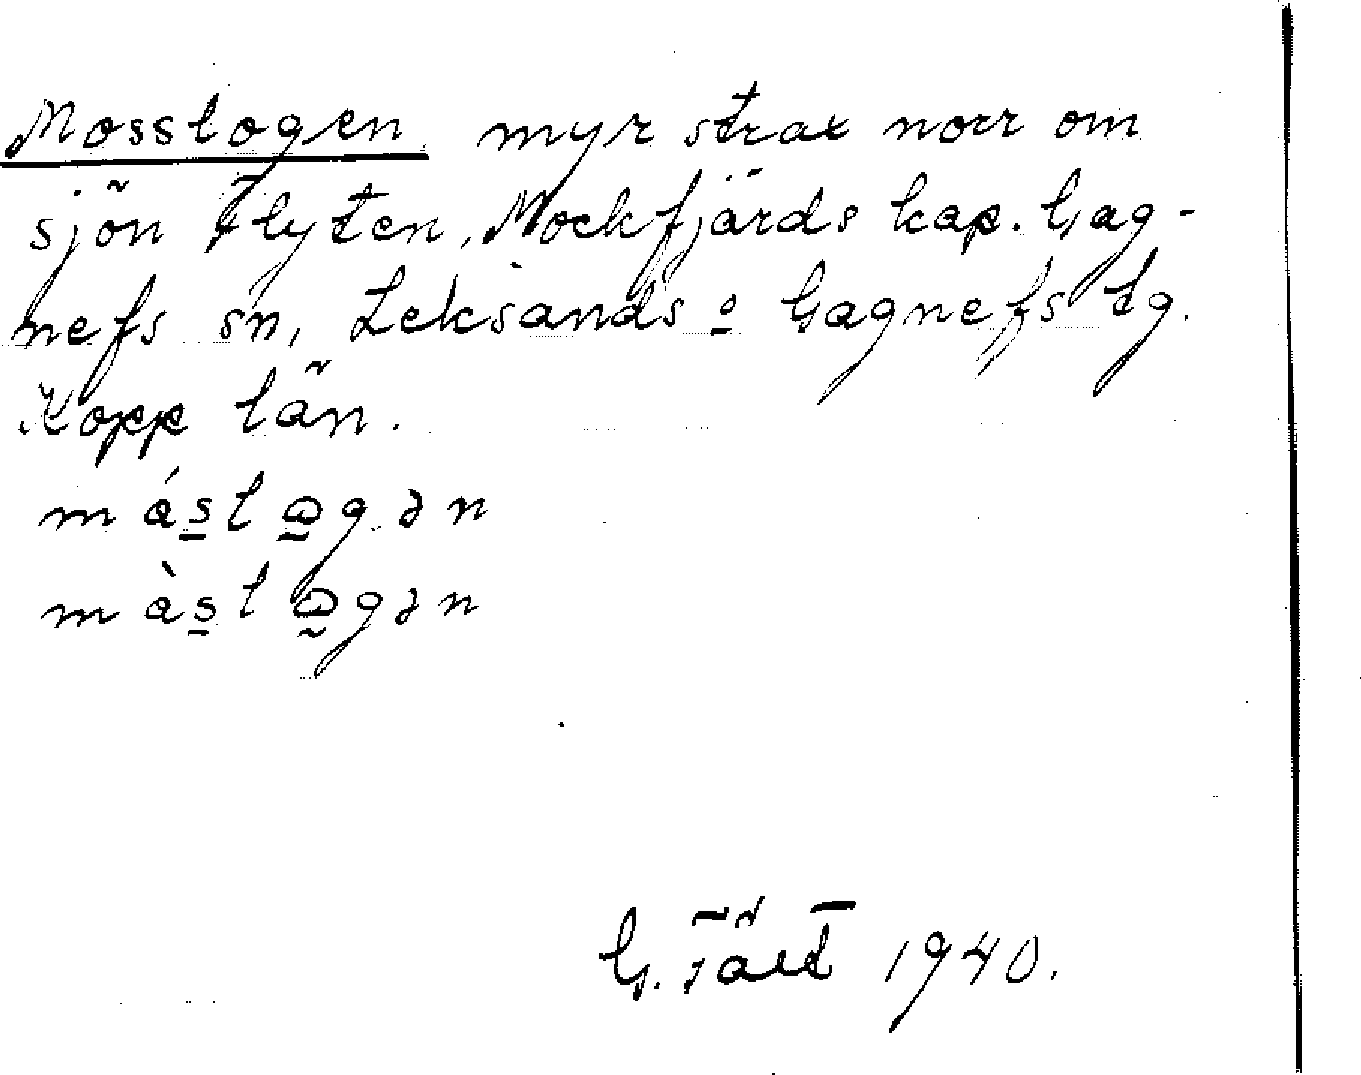 Msslogen myr strax norr om
sjön Flyten, Mockfjärds kap. Gag-
nefs sn, Leksands o Gagnefs tg.
Kopp län.
máslωgən
màslωgən
G. 1940.